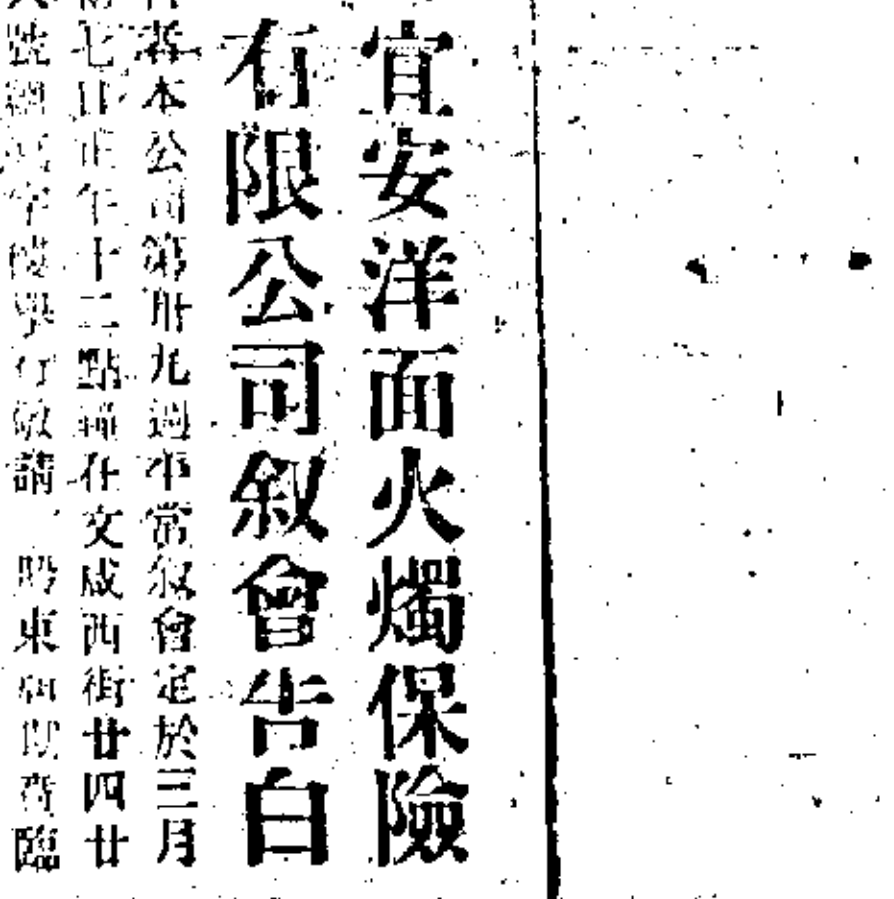 宜安洋面火燭保險
有限公司叙會告白
者本公司第卅九週常叙會定於三月
七日正午十二點鐘在文咸西街廿四廿
號寫字樓舉行敬請 股東屆期賁臨